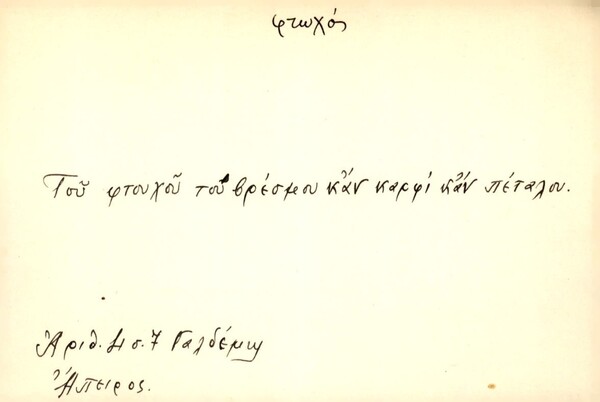 φτωχός
Τοῦ φτουχοῦ του βρέσμου κἄν καρφί κἄν πέταλου.
Ἀριθ. 41 σ. 7 Γαλδέμη
Ἤπειρος.